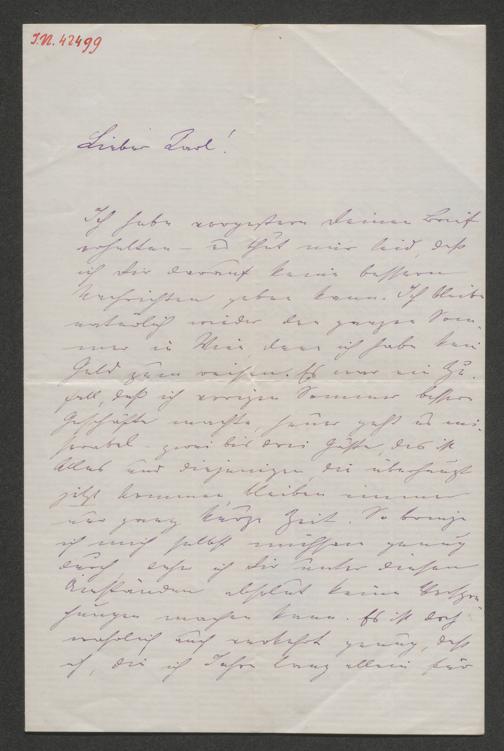 I.N. 42499
Lieber Karl!
Ich habe vorgestern Deinen Brief
erhalten – es thut mir leid, daß
ich Dir darauf keine bessern
Nachrichten geben kann. Ich bleibe
natürlich wieder den ganzen Som-
mer in Wien denn ich habe kein
Geld zum reisen. Es war ein Zu-
fall, daß ich vorigen Sommer bessere
Geschäfte machte, heuer geht es mi-
serabel – zwei bis drei Gäste, das ist
Alles und diejenigen, die überhaupt
jetzt kommen, bleiben immer
nur ganz kurze Zeit. So bringe
ich mich selbst mühsam genug
durch, daß ich Dir unter diesen
Umständen absolut keine Verspre-
chungen machen kann. Es ist doch
wahrlich auch verkehrt genug, daß
ich, die ich Jahre lang allein für